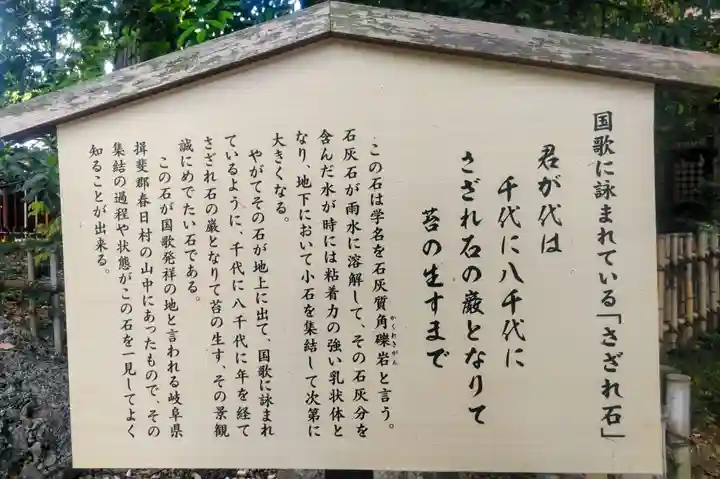 国歌に詠まれている「さざれ石」
君が代は
千代に八千代に
さざれ石の巌となりて
苔の生すまで
この石は学名を石灰質角礫岩と言う。
かくれきがん
石灰石が雨水に溶解して、その石灰分を
含んだ水が時には粘着力の強い乳状体と
なり、地下において小石を集結して次第に
大きくなる。
やがてその石が地上に出て、国歌に詠まれ
ているように、千代に八千代に年を経て
さざれ石の巌となりて苔の生す、その景観
誠にめでたい石である。
この石が国歌発祥の地と言われる岐阜県
揖斐郡春日村の山中にあったもので、その
集結の過程や状態がこの石を一見してよく
知ることが出来る。